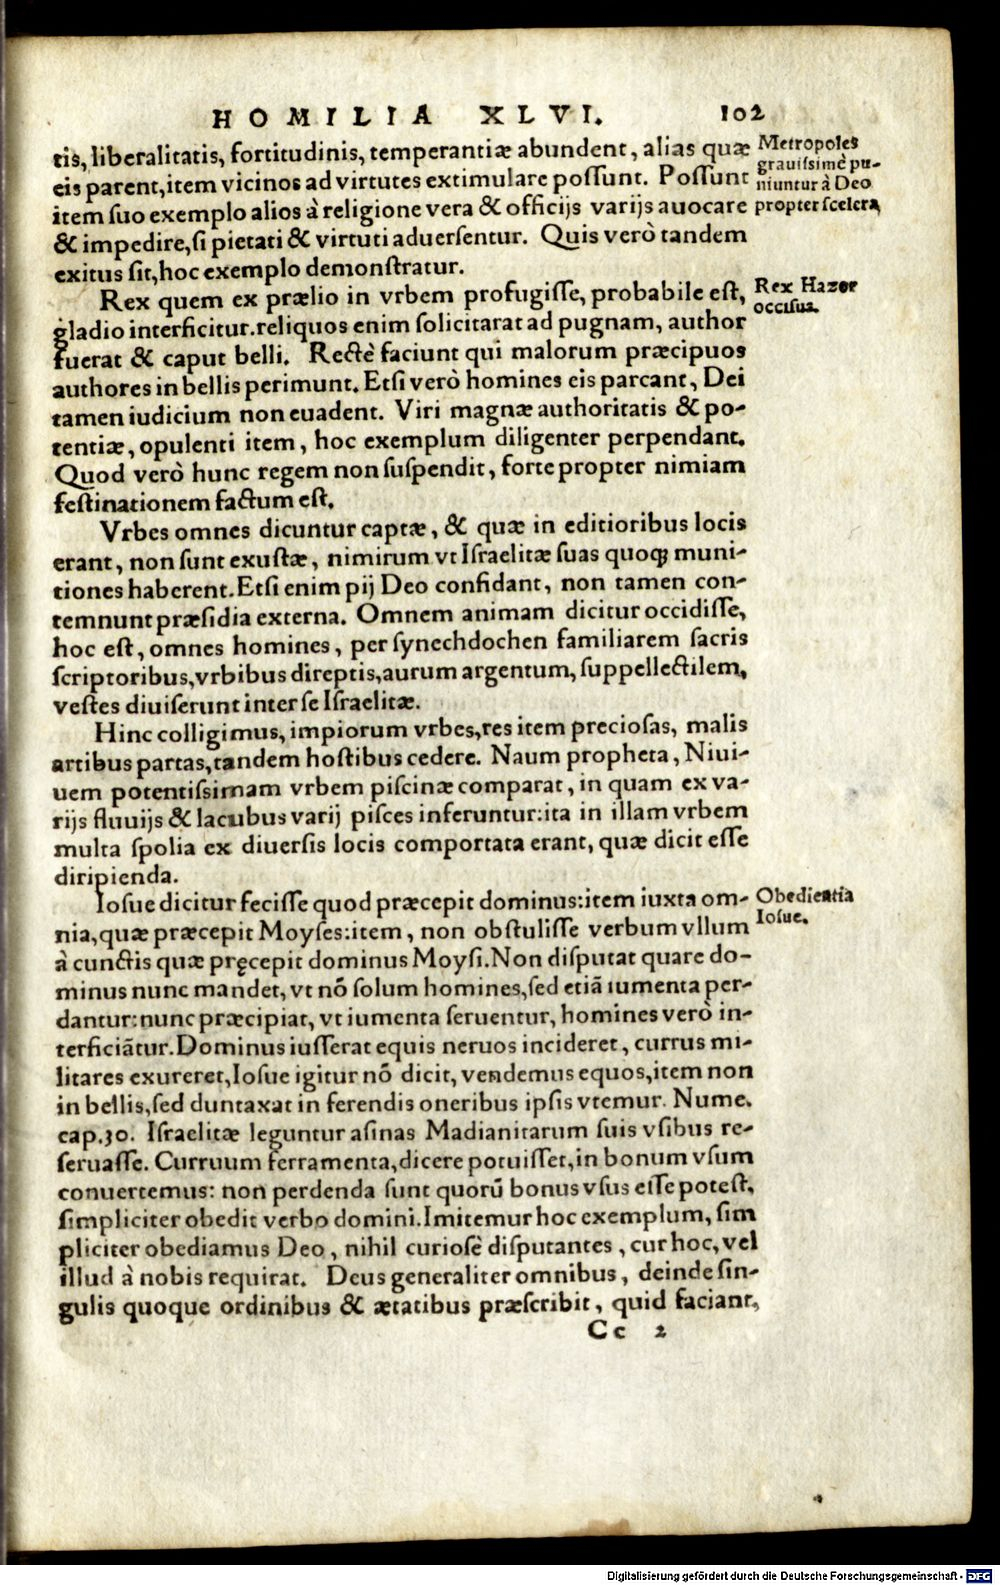 HOMILIA XLVI. 102
tis, liberalitatis, fortitudinis, temperantiæ abundent, alias quæ
eis parent, item vicinos ad virtutes extimulare possunt. Possunt
item suo exemplo alios à religione vera & officijs varijs auocare
& impedire, si pietati & virtuti aduersentur. Quis verò tandem
exitus sit, hoc exemplo demonstratur.
Metropoles
grauissimè pu-
niuntur à Deo
propter scelera,
Rex quem ex prælio in vrbem profugisse, probabile est,
gladio interficitur. reliquos enim solicitarat ad pugnam, author
fuerat & caput belli. Rectè faciunt qui malorum præcipuos
authores in bellis perimunt. Etsi verò homines eis parcant, Dei
tamen iudicium non euadent. Viri magnæ authoritatis & po-
tentiæ, opulenti item, hoc exemplum diligenter perpendant.
Quod verò hunc regem non suspendit, forte propter nimiam
festinationem factum est.
Rex Hazor
occisus.
Vrbes omnes dicuntur captæ, & quæ in editioribus locis
erant, non sunt exustæ, nimirum vt Israelitæ suas quoq; muni-
tiones haberent. Etsi enim pij Deo confidant, non tamen con-
temnunt præsidia externa. Omnem animam dicitur occidisse,
hoc est, omnes homines, per synechdochen familiarem sacris
scriptoribus, vrbibus direptis, aurum argentum, suppellectilem,
vestes diuiserunt inter se Israelitæ.
Hinc colligimus, impiorum vrbes, res item preciosas, malis
artibus partas, tandem hostibus cedere. Naum propheta, Niui-
uem potentissimam vrbem piscinæ comparat, in quam ex va-
rijs fluuijs & lacubus varij pisces inferuntur: ita in illam vrbem
multa spolia ex diuersis locis comportata erant, quæ dicit esse
diripienda.
Iosue dicitur fecisse quod præcepit dominus: item iuxta om-
nia, quæ præcepit Moyses: item, non obstulisse verbum vllum
à cunctis quæ pręcepit dominus Moysi. Non disputat quare do-
minus nunc mandet, vt nō solum homines, sed etiā iumenta per-
dantur: nunc præcipiat, vt iumenta seruentur, homines verò in-
terficiātur. Dominus iusserat equis neruos incideret, currus mi-
litares exureret, Iosue igitur nō dicit, vendemus equos, item non
in bellis, sed duntaxat in ferendis oneribus ipsis vtemur. Nume.
cap. 30. Israelitæ leguntur asinas Madianitarum suis vsibus re-
seruasse. Curruum ferramenta, dicere potuisset, in bonum vsum
conuertemus: non perdenda sunt quorū bonus vsus esse potest,
simpliciter obedit verbo domini. Imitemur hoc exemplum, sim
pliciter obediamus Deo, nihil curiosè disputantes, cur hoc, vel
illud à nobis requirat. Deus generaliter omnibus, deinde sin-
gulis quoque ordinibus & ætatibus præscribit, quid faciant,
Obedientia
Iosue.
Cc 2
Digitalisierung gefördert durch die Deutsche Forschungsgemeinschaft - DFG